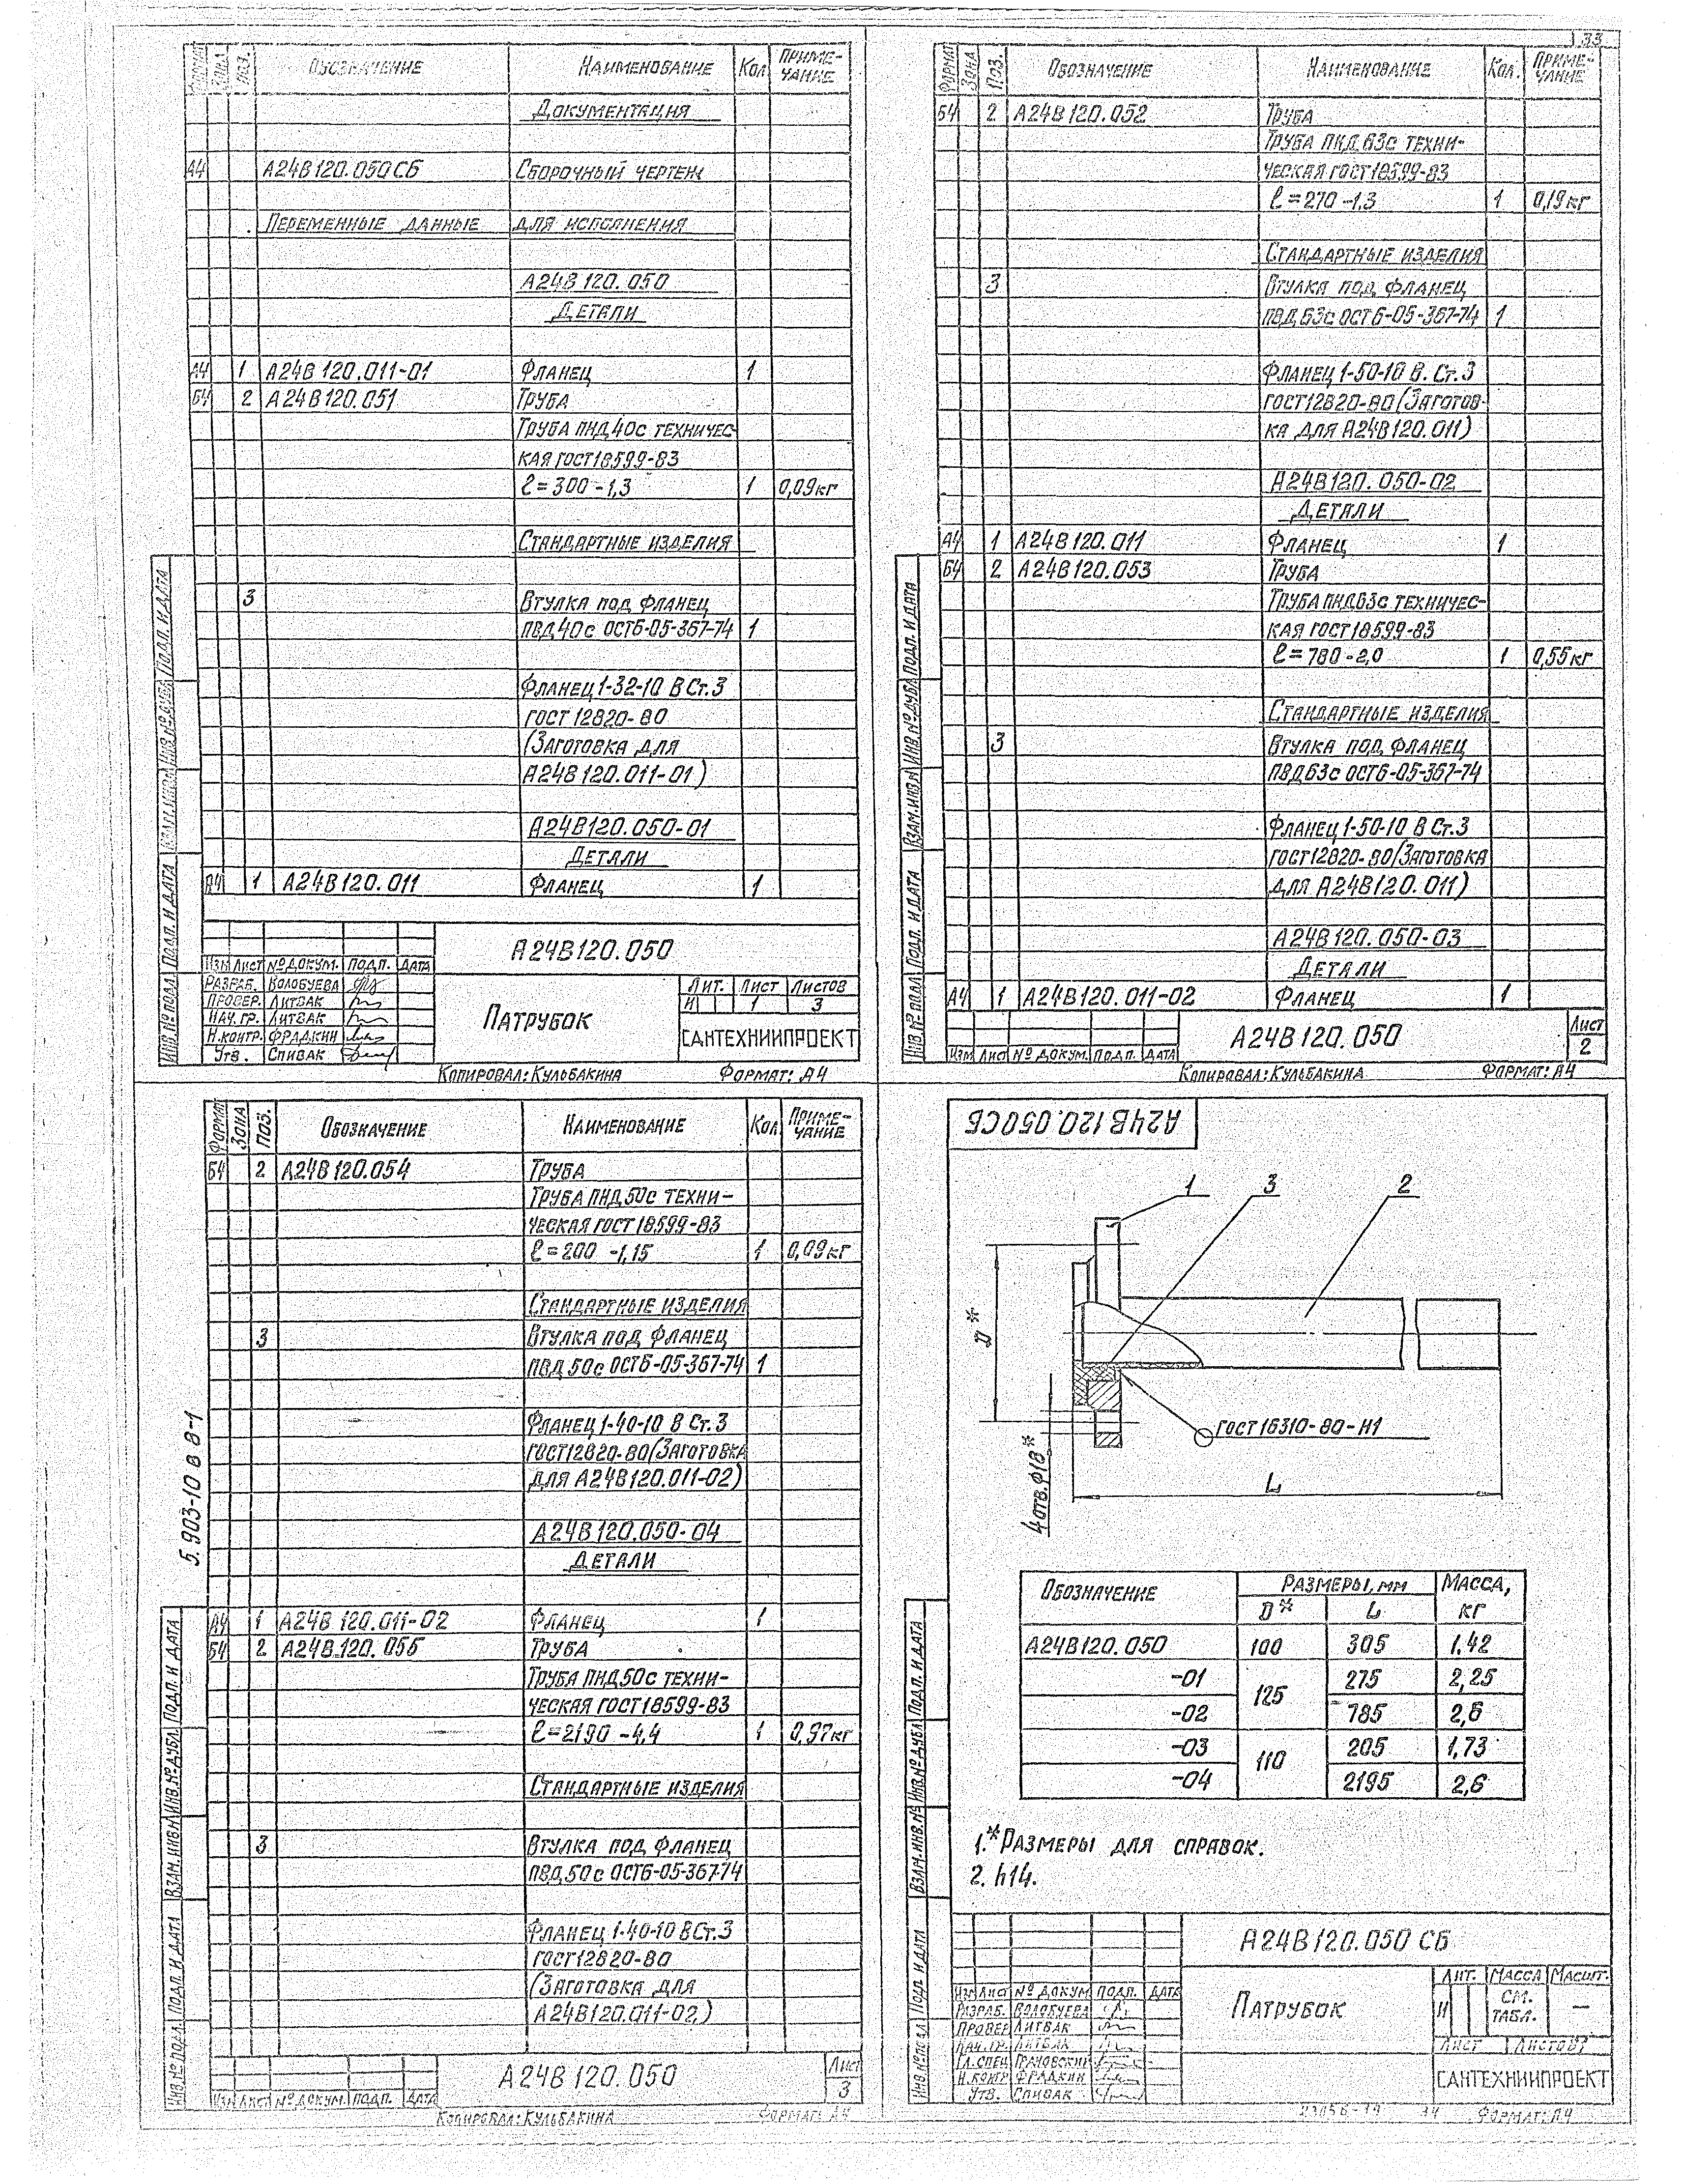 33
Формат Зона Поз. Обозначение Наименование Кол. Приме-
чание
Документация
А4 А24В120.050СБ Сборочный чертеж
Переменные данные для исполнения
А24В120.050
Детали
А4 1 А24В120.011-01 Фланец 1
Б4 2 А24В120.051 Труба
Труба ПНД 40с техничес-
кая ГОСТ 18599-83
ℓ=300-1,3 1 0,09кг
Стандартные изделия
3 Втулка под фланец
ПВД 40с ОСТ6-05-367-74 1
Фланец 1-32-10 В Ст.3
ГОСТ 12820-80
(Заготовка для
А24В120.011-01)
А24В120.050-01
Детали
А4 1 А24В120.011 Фланец 1
А24В120.050
Изм Лист № докум. Подп. Дата
Разраб. Волобуева
Провер. Литвак
Нач. гр. Литвак
Н.контр. Фрадкин
Утв. Спивак
Патрубок
Лит. Лист Листов
И 1 3
САНТЕХНИИПРОЕКТ
Инв. № подл Подп. и дата Взам. инв. № Инв. № дубл Подп. и дата
Копировал: Кульбакина Формат: А4
Формат Зона Поз. Обозначение Наименование Кол. Приме-
чание
Б4 2 А24В120.052 Труба
Труба ПНД 63с техни-
ческая ГОСТ 18599-83
ℓ=270-1,3 1 0,19кг
Стандартные изделия
3 Втулка под фланец
ПВД 63с ОСТ6-05-367-74 1
Фланец 1-50-10 В. Ст.3
ГОСТ 12820-80 (Заготов-
ка для А24В120.011)
А24В120.050-02
Детали
А4 1 А24В120.011 Фланец 1
Б4 2 А24В120.053 Труба
Труба ПНД 63с техничес-
кая ГОСТ 18599-83
ℓ=780-2,0 1 0,55кг
Стандартные изделия
3 Втулка под фланец
ПВД 63с ОСТ6-05-367-74
Фланец 1-50-10 В Ст.3
ГОСТ 12820-80 (Заготовка
для А24В120.011)
А24В120.050-03
Детали
А4 1 А24В120.011-02 Фланец 1
Изм Лист № докум. Подп. Дата
А24В120.050
Лист
2
Инв. № подл Подп. и дата Взам. инв. № Инв. № дубл Подп. и дата
Копировал: Кульбакина Формат: А4
Формат Зона Поз. Обозначение Наименование Кол Приме-
чание
Б4 2 А24В120.054 Труба
Труба ПНД 50с техни-
ческая ГОСТ 18599-83
ℓ=200-1,15 1 0,09кг
Стандартные изделия
3 Втулка под фланец
ПВД 50с ОСТ6-05-367-74 1
Фланец 1-40-10 В Ст.3
ГОСТ 12820-80 (Заготовка
для А24В120.011-02)
А24В120.050-04
Детали
А4 1 А24В120.011-02 Фланец 1
Б4 2 А24В120.055 Труба
Труба ПНД 50с техни-
ческая ГОСТ 18599-83
ℓ=2190-4,4 1 0,97кг
Стандартные изделия
3 Втулка под фланец
ПВД 50с ОСТ6-05-367-74
Фланец 1-40-10 В Ст.3
ГОСТ 12820-80
(Заготовка для
А24В120.011-02)
Изм Лист № докум. Подп. Дата
А24В120.050
Лист
3
5.903-10 в 8-1
Инв. № подл. Подп. и дата Взам. инв. № Инв. № дубл. Подп. и дата
Копировал: Кульбакина Формат: А4
А24В120.050СБ
1 3 2
D*
4 отв. ф18*
ГОСТ 16310-80-Н1
L
Обозначение Размеры, мм Масса,
кг
D* L
А24В120.050 100 305 1,42
-01 125 275 2,25
-02 785 2,6
-03 110 205 1,73
-04 2195 2,6
1.*Размеры для справок.
2. h14.
А24В120.050 СБ
Изм Лист № докум Подп. Дата
Разраб. Волобуева
Провер Литвак
Нач. гр. Литвак
Гл. спец Грановский
Н. контр Фрадкин
Утв. Спивак
Патрубок
Лит. Масса Масшт.
И см.
табл. —
Лист Листов 1
САНТЕХНИИПРОЕКТ
Инв. № подл Подп. и дата Взам. инв. № Инв. № дубл Подп. и дата
Формат: А4